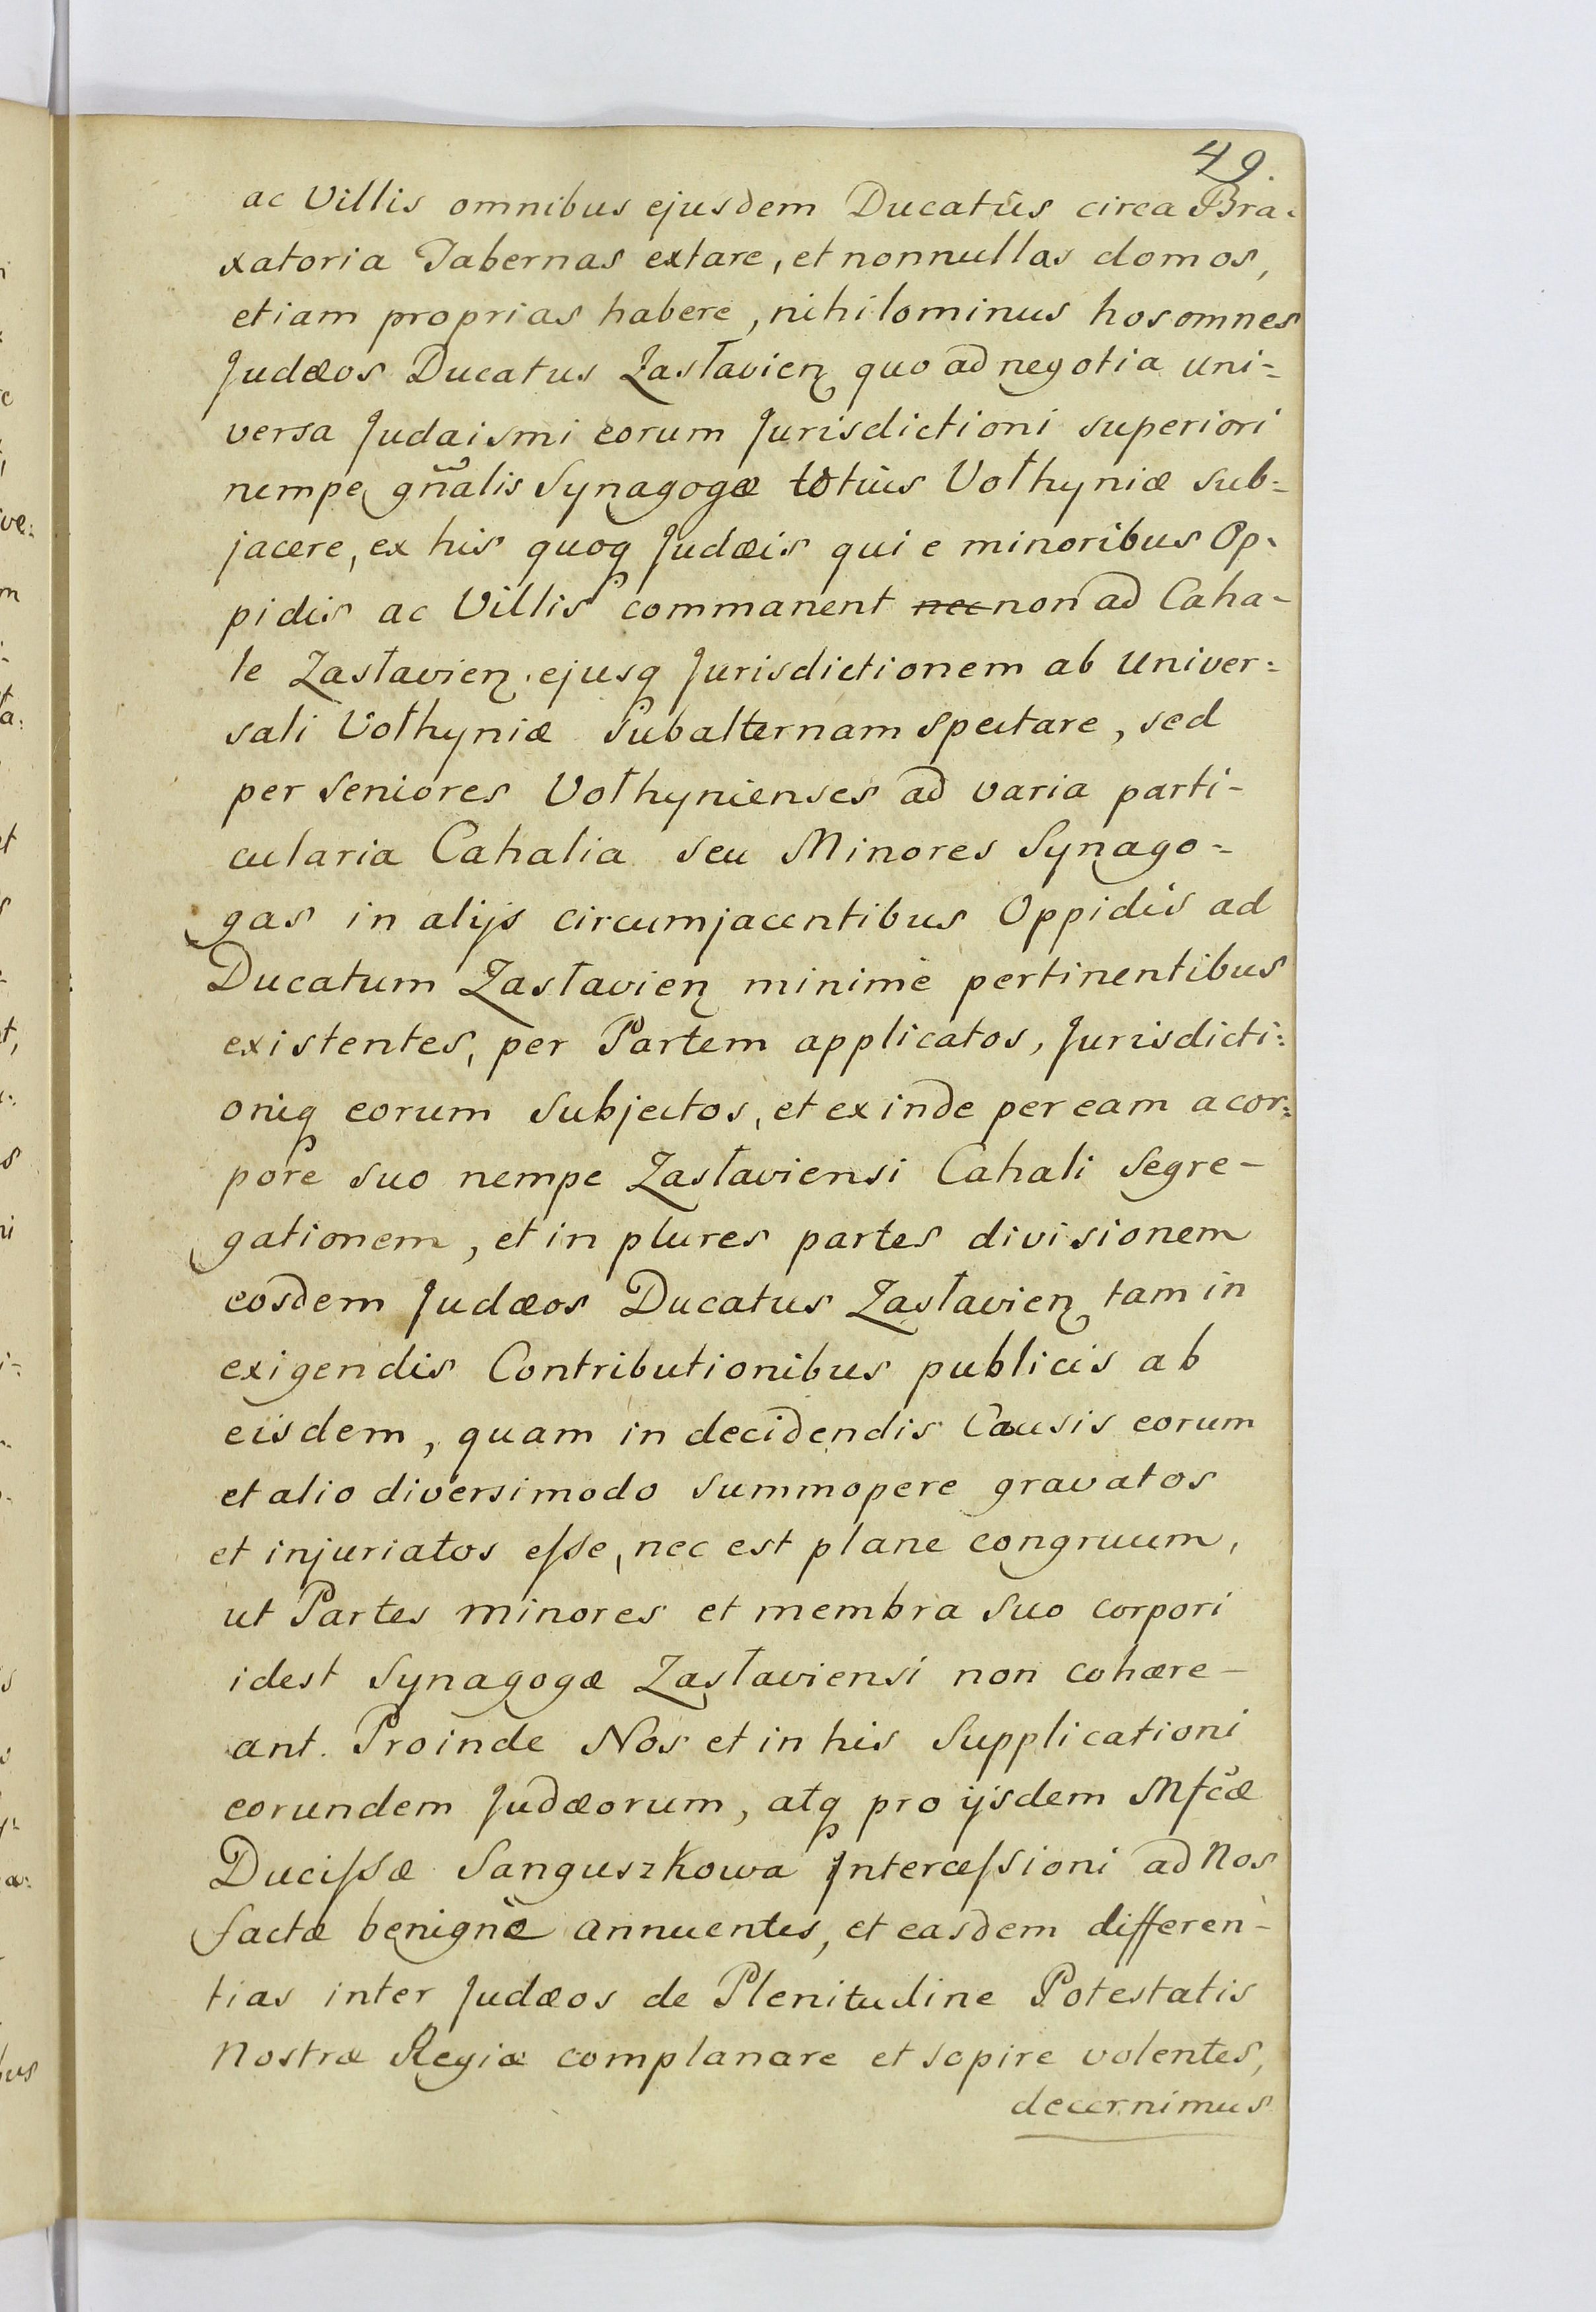 49.
ac Villis omnibus ejusdem Ducatûs circa Bra-
xatoria Tabernas extare, et nonnullas domos,
etiam proprias habere, nihilominus hos omnes
Judæos Ducatus Zasłavien quo ad negotia uni=
versa Judaismi eorum Jurisdictioni superiori
nempe gñalis Synagogæ totiûs Vołhyniæ sub=
jacere, ex his quoq Judæis qui e minoribus Op-
pidis ac Villis commanent nec non ad Caha-
le Zasłavien. ejusq Jurisdictionem ab univer=
sali Vołhyniæ Subalternam spectare, sed
per Seniores Vołhynienses ad varia parti-
cularia Cahalia seu Minores Synago=
gas in alijs circumjacentibus Oppidis ad
Ducatum Zasłavien minimè pertinentibus
existentes, per Partem applicatos, Jurisdicti=
oniq eorum Subjectos, et exinde per eam a cor=
pore suo nempe Zasłaviensi Cahali Segre-
gationem, et in plures partes divisionem
eosdem Judæos Ducatus Zasłavien tam in
exigendis Contributionibus publicis ab
eisdem, quam in decidendis Causis eorum
et alio diversimodo summopere gravatos
et injuriatos esse, nec est plane congruum,
ut Partes minores et membra suo corpori
idest Synagogæ Zasłaviensi non cohære-
ant. Proinde Nos et in his Supplicationi
eorundem Judæorum, atq pro ijsdem Mfcæ
Ducissæ Sanguszkowa Intercessioni ad Nos
factæ benignè annuentes, et easdem differen-
tias inter Judæos de Plenitudine Potestatis
Nostræ Regiæ complanare et sopire volentes,
decernimus